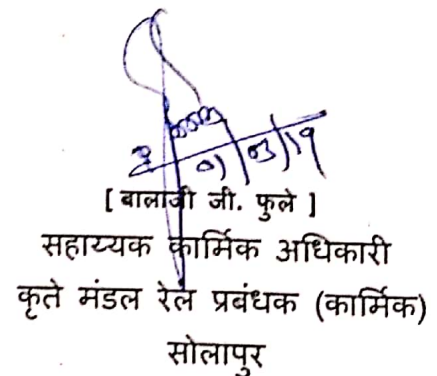 01/03/19
[ बालाजी जी. फुले ]
सहाय्यक कार्मिक अधिकारी
कृते मंडल रेल प्रबंधक (कार्मिक)
सोलापुर